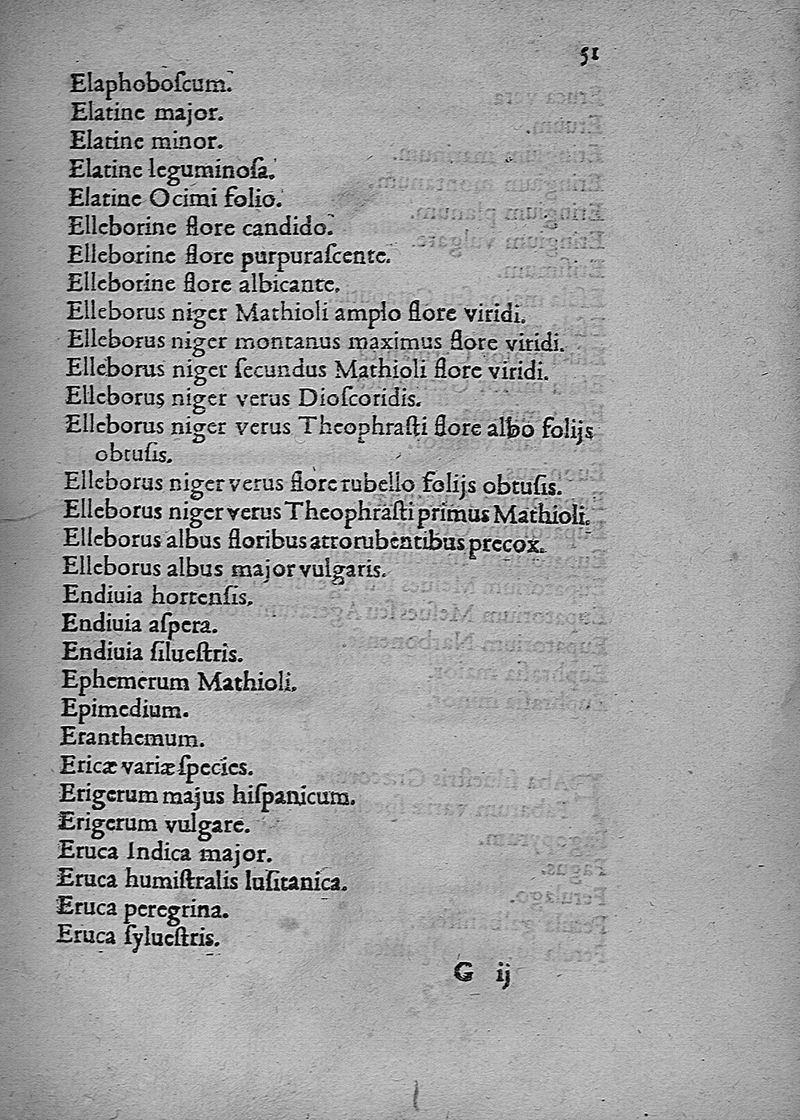 51
Elaphoboſcum.
Elatine major.
Elatine minor.
Elatine leguminoſa.
Elatine Ocimi folio.
Elleborine flore candido.
Elleborine flore purpuraſcente.
Elleborine flore albicante.
Elleborus niger Mathioli amplo flore viridi.
Elleborus niger montanus maximus flore viridi.
Elleborus niger ſecundus Mathioli flore viridi.
Elleborus niger verus Dioſcoridis.
Elleborus niger verus Theophraſti flore albo folijs
obtuſis.
Elleborus niger verus flore rubello folijs obtuſis.
Elleborus niger verus Theophraſti primus Mathioli.
Elleborus albus floribus atrorubentibus precox.
Elleborus albus major vulgaris.
Endiuia hortenſis.
Endiuia aſpera.
Endiuia ſilueſtris.
Ephemerum Mathioli.
Epimedium.
Eranthemum.
Ericæ variæ ſpecies.
Erigerum majus hiſpanicum.
Erigerum vulgare.
Eruca Indica major.
Eruca humiſtralis luſitanica.
Eruca peregrina.
Eruca ſylueſtris.
G ij